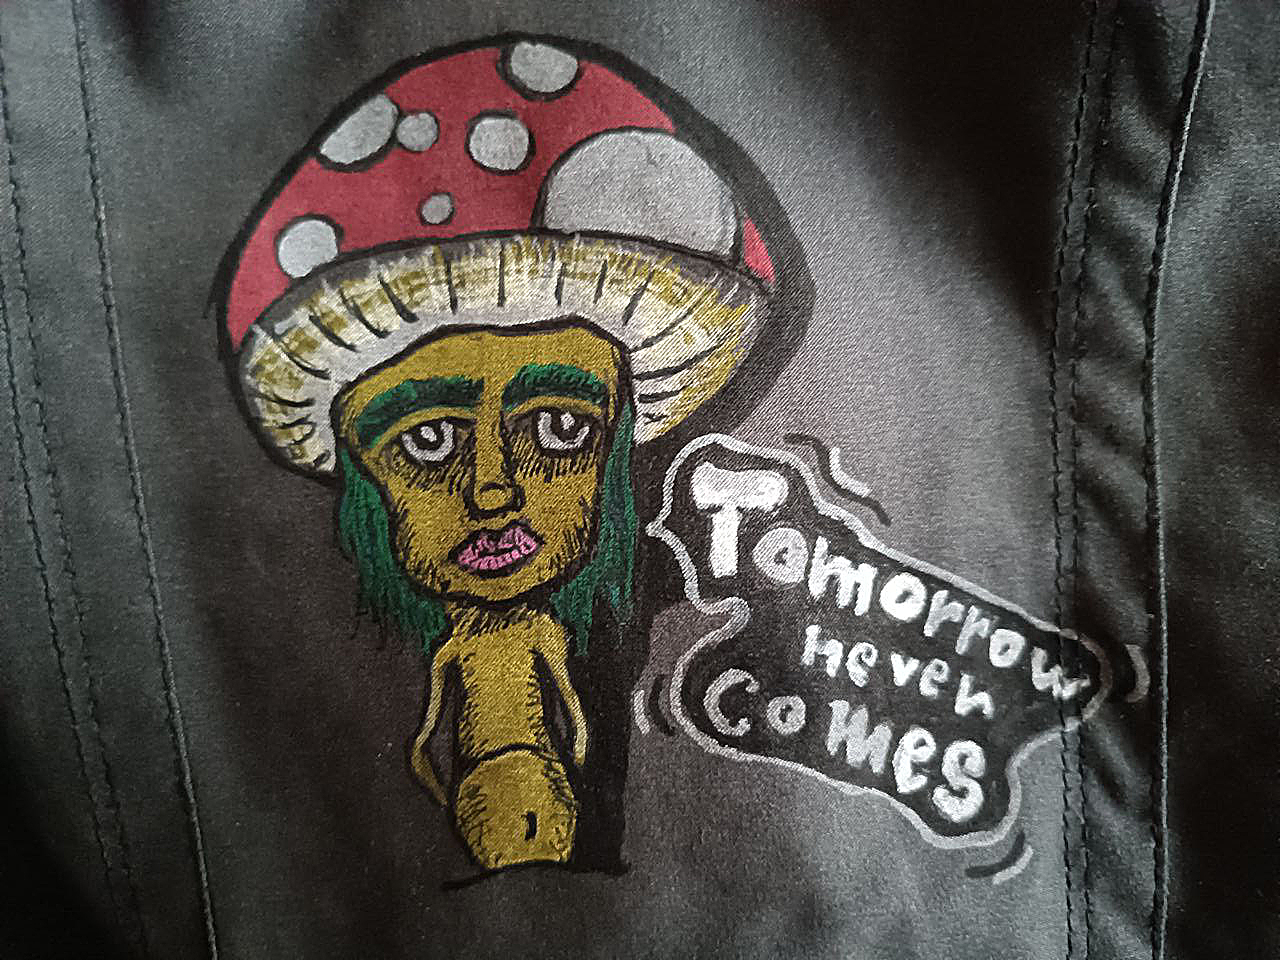 Tomorrow
never
Comes